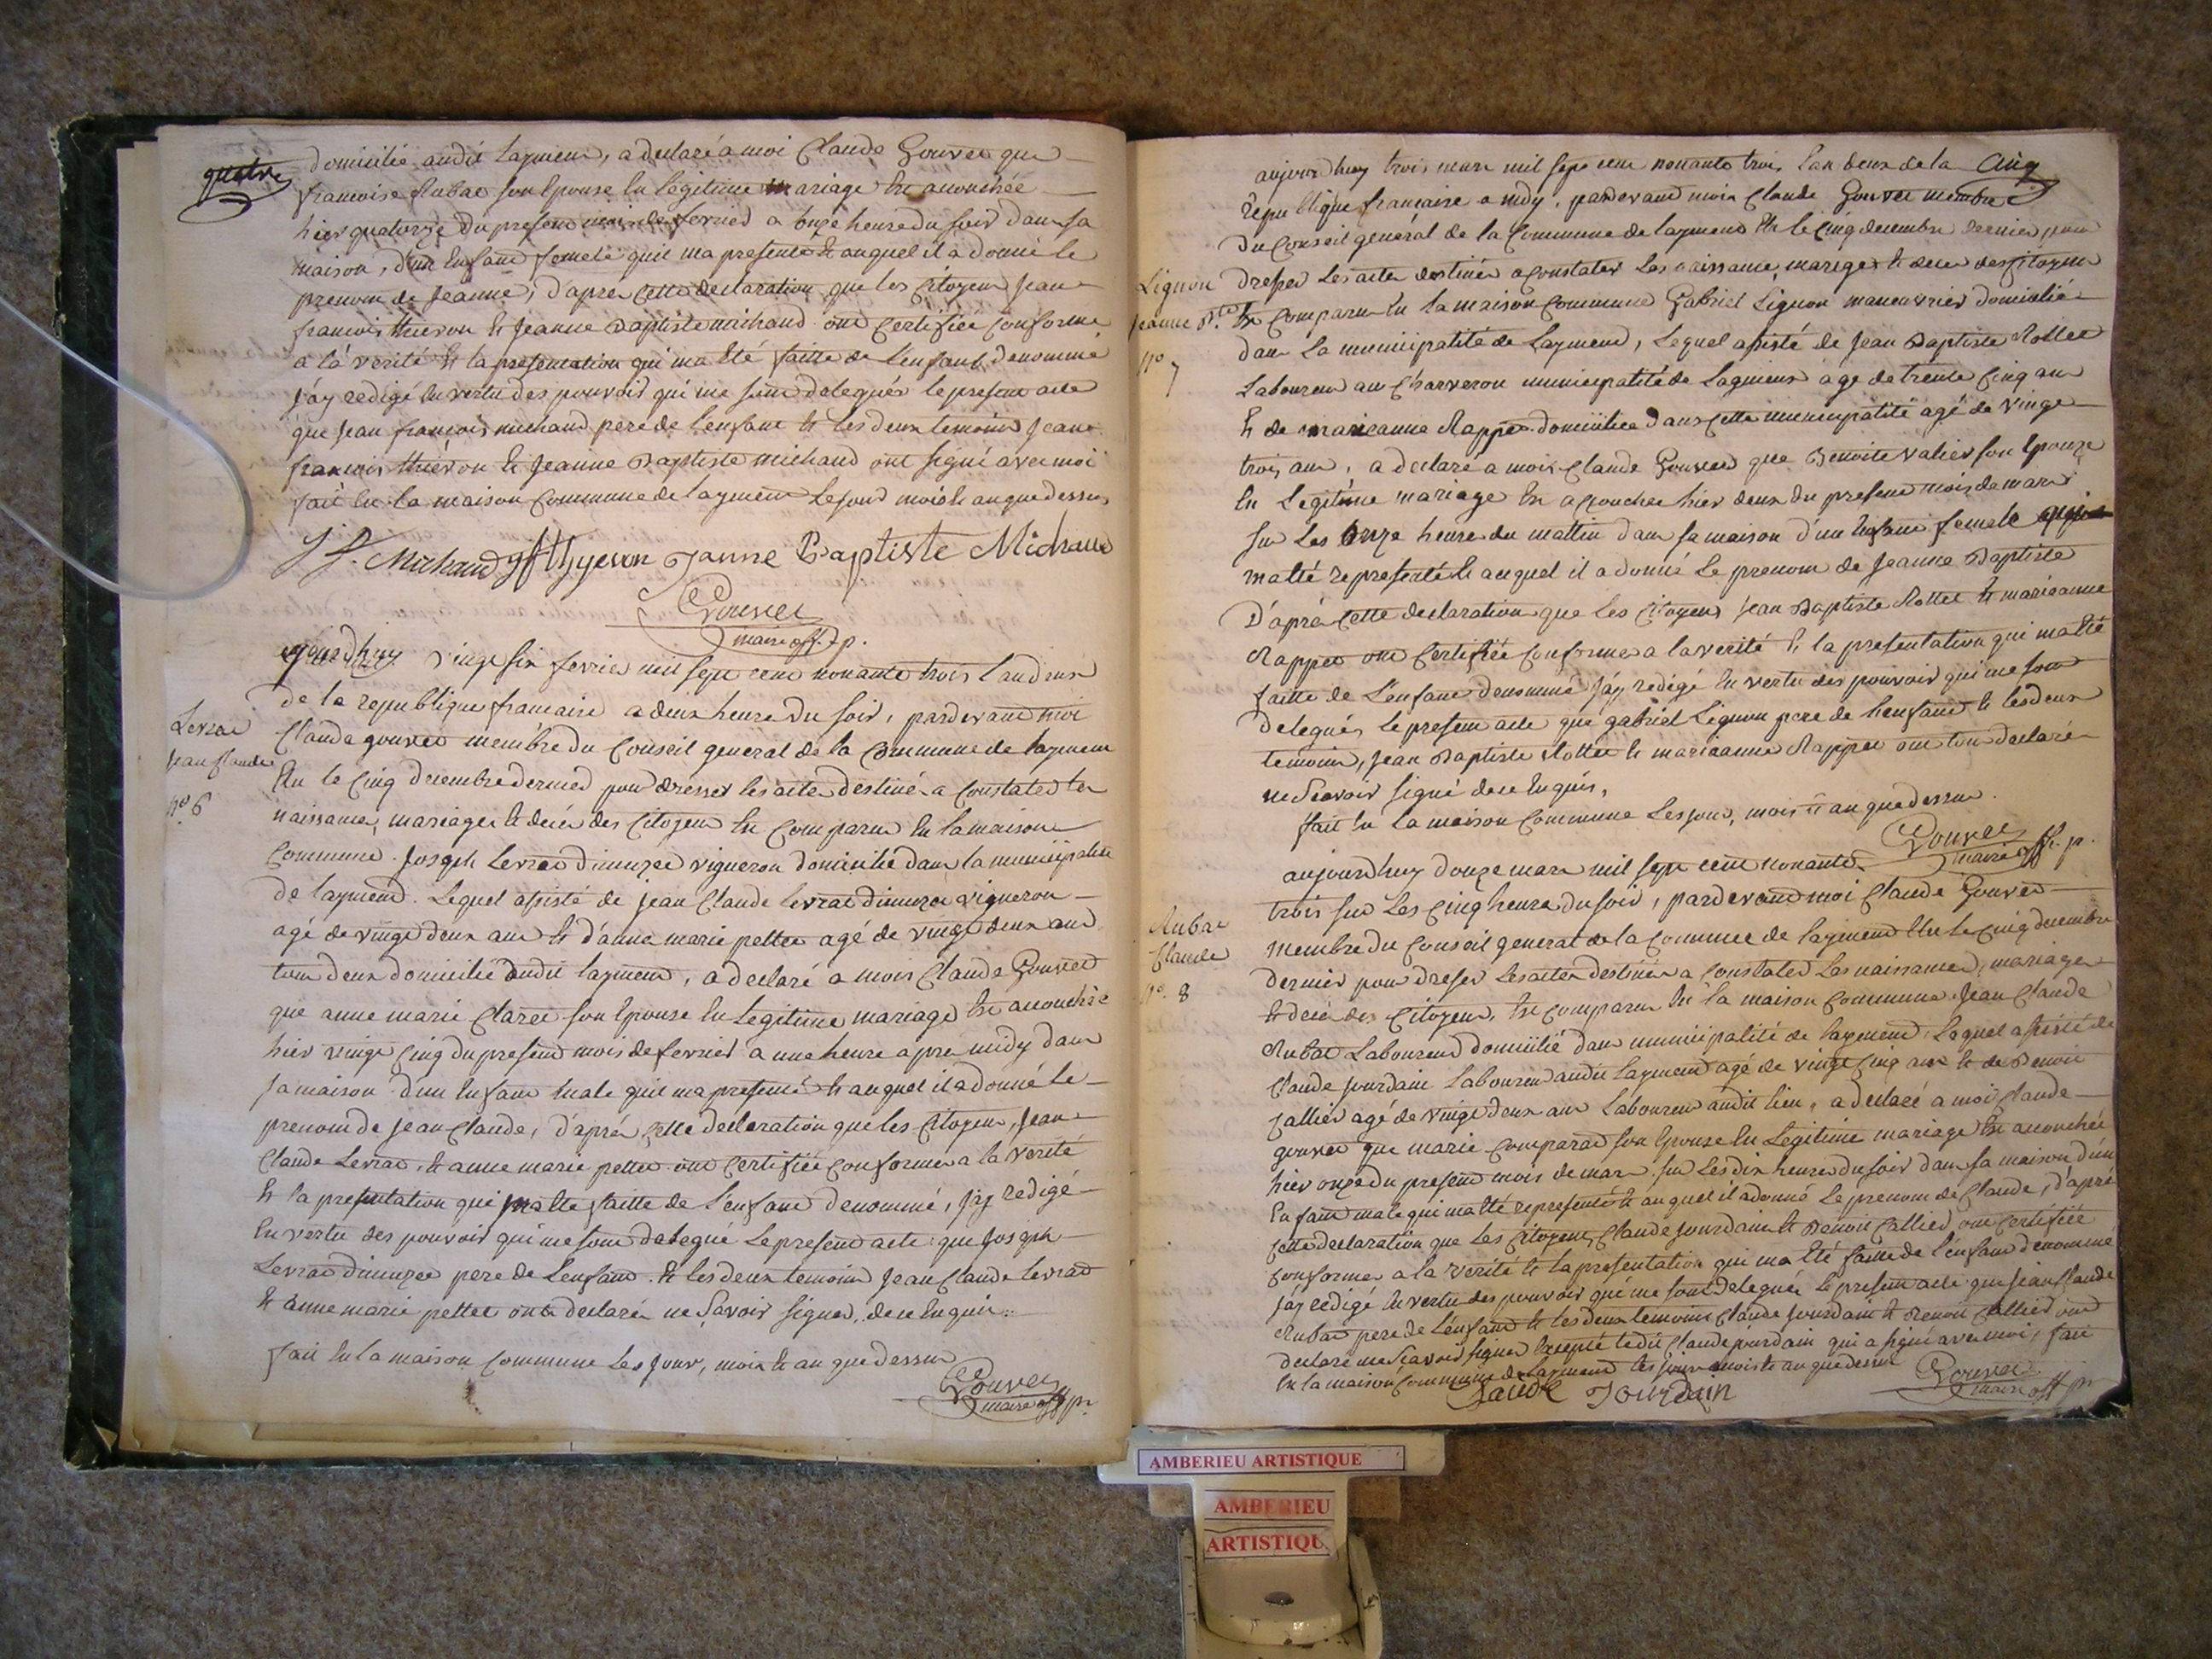 quatre
domicilié audit laymens, a declaré a moi Claude Gouvet que
francoise Rubat son Epouse En Legitime mariage Est accouchée
hier quatorze du present mois de fevrier a onze heure du soir dans sa
maison, d'un Enfant femele quil ma presenté & auquel il a donné le
prenom de Jeanne, d'après cette declaration que les Citoyens Jean
francois thievon & Jeanne Baptiste michaud ont Certifiée Conforme
a la verité & la presentation qui ma Eté faitte de l'enfant denommé
j'ay redigé En vertu des pouvoirs qui me sont delegués le present acte
que Jean francois michaud pere de l'enfant & les deux temoins Jean
francois thievon & Jeanne Baptiste michaud ont signé avec moi
fait En la maison Commune de laymens le jour mois & an que dessus
J f. Michaud jf thyevon Janne Baptiste Michaud
Gouvet
maire off. p.
Levrat
Jean Claude
no. 6
aujourdhuy vingt six fevrier mil sept cent nonante trois l'an deux
de la republique francaise a deux heure du soir, pardevant moi
Claude gouvet membre du Conseil general de la Commune de laymens
Elu le Cinq decembre dernier pour dresser les actes destinés a Constater les
naissances, mariages & décés des Citoyens Est Comparu En la maison
Commune. Joseph Levrat vigneron domicilié dans la municipalité
de laymens. Lequel assisté de jean Claude Levrat vigneron
agé de vingt deux ans & d'anne marie pettet agé de vingt deux ans
tous deux domicilié audit laymens, a declaré a mois Claude Gouvet
que anne marie Claret son Epouse En Legitime mariage Est accouchée
hier vingt Cinq du present mois de fevrier a une heure apres midy dans
sa maison d'un Enfant male quil ma presenté & auquel il a donné le
prenom de Jean Claude, d'après cette declaration que les Citoyens, Jean
Claude Levrat, & anne marie pettet ont Certifiée Conforme a la verité
& la presentation qui ma Eté faitte de l'enfant denommé, j'ay redigé
En vertu des pouvoirs qui me sont delegué Le present acte que Joseph
Levrat pere de L'enfant. & les deux temoins Jean Claude Levrat
& anne marie pettet ont declaré ne savoir signer, de ce Enquis.
fait En la maison Commune Les jour, mois & an que dessus
Gouvet
maire off p.
Cinq
aujourdhuy trois mars mil sept cent nonante trois l'an deux de la
republique francaise a midy, pardevant mois Claude Gouvet membre
Du Conseil general de la Commune de laymens Elu le Cinq decembre dernier pour
Lignon
Jeanne Bte
no 7
dresser Les actes destinés a constater Les naissances, mariages & deces des Citoyens
Est Comparu En la maison Commune Gabriel Lignon manouvrier domicilié
dans La municipalité de Laymens, Lequel assisté de Jean Baptiste Rollet
Laboureur au Charveron municipalité de Lagnieux agé de trente Cinq ans
& de marieanne Rappet domiciliée dans cette municipalité agé de vingt
trois ans, a declaré a mois Claude Gouvet que Benoite valier son Epouze
En Legitime mariage Est accouchée hier deux du present mois de mars
sur Les onze heure du mattin dans sa maison d'un Enfant femele
ma Eté representé & auquel il a donné Le prenom de Jeanne Baptiste
D'après Cette declaration que les Citoyens Jean Baptiste Rollet & marieanne
Rappet ont Certifiée Conforme a la verité & la presentation qui ma Eté
faitte de L'enfant denommé j'ay redigé En vertu des pouvoirs qui me sont
delegués le present acte que gabriel Lignon pere de l'enfant & les deux
temoins, Jean Baptiste Rollet & marieanne Rappet ont tous declaré
ne scavoir signé de ce Enquis,
fait En La maison Commune Les jour, mois & an que dessus.
Gouvet
maire off. p.
aujourdhuy douze mars mil sept cent nonante
trois sur Les Cinq heure du soir, pardevant moi Claude Gouvet
Rubat
Claude
no. 8
membre du Conseil general de la Commune de laymens Elu Le Cinq decembre
dernier pour dresser Les actes destinés a Constater Les naissances, mariages
& décés des Citoyens, Est comparu En la maison Commune Jean Claude
Rubat Laboureur domicilié dans municipalité de laymens Lequel assisté de
Claude Jourdain Laboureur audit Laymens agé de vingt Cinq ans & de Benoit
Callier agé de vingt deux ans Laboureur audit lieu, a declaré a moi Claude
gouvet que marie Comparat son Epouse En Legitime mariage Est accouchée
hier onze du present mois de mars sur Les dix heure du soir dans sa maison d'un
Enfant male qui ma Eté representé & auquel il a donné Le prenom de Claude, d'après
cette declaration que Les Citoyens, Claude Jourdain & Benoit Callier ont Certifiée
Conforme a la verité & la presentation qui ma Eté faitte de l'enfant denommé
j'ay redigé En vertu des pouvoirs qui me sont delegués le present acte que Jean Claude
Rubat pere de L'enfant & les deux temoins Claude Jourdain & Benoit Callier ont
declaré ne scavoir signer Excepté ledit Claude jourdain qui a signé avec moi, fait
En la maison Commune de Laymens les jour mois & an que dessus
Claude Jourdain
Gouvet
maire off p.
AMBERIEU ARTISTIQUE
AMBERIEU
ARTISTIQU